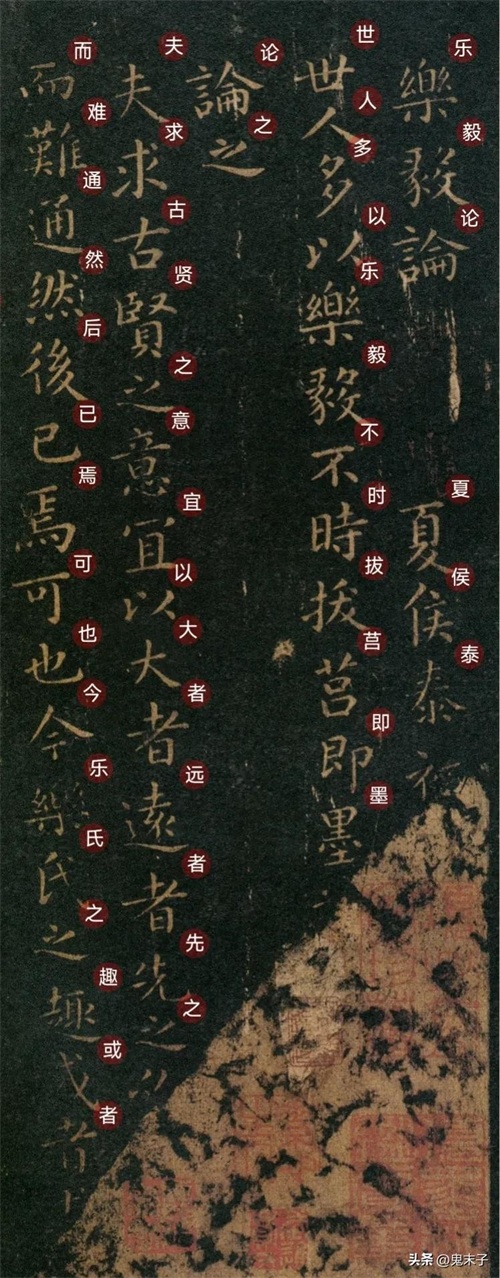 樂毅論 夏侯泰
乐毅论 夏侯泰
世人多以樂毅不時拔莒即墨
世人多以乐毅不时拔莒即墨
論之
论之
夫求古賢之意宜以大者遠者先之
夫求古贤之意宜以大者远者先之
而難通然後已焉可也今樂氏之趣或者
而难通然后已焉可也今乐氏之趣或者
头条 @鬼末子